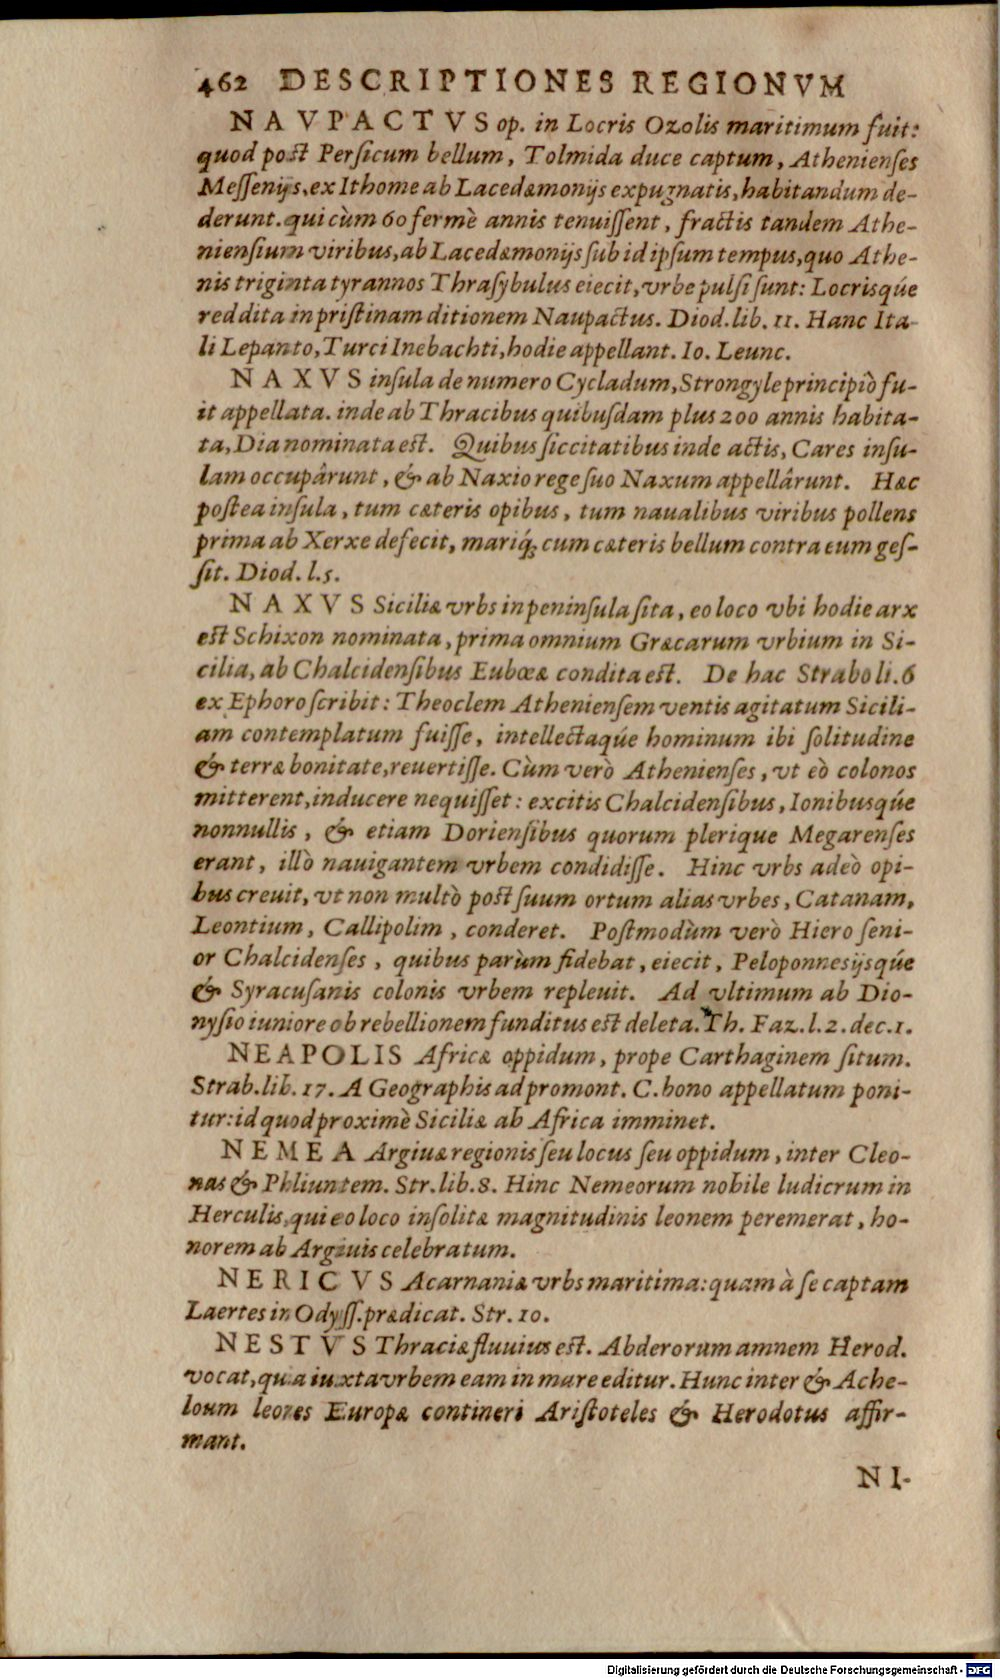 462 DESCRIPTIONES REGIONVM
NAVPACTVS op. in Locris Ozolis maritimum fuit:
quod post Persicum bellum, Tolmida duce captum, Athenienses
Messenijs, ex Ithome ab Lacedæmonijs expugnatis, habitandum de-
derunt. qui cùm 60 fermè annis tenuissent, fractis tandem Athe-
niensium viribus, ab Lacedæmonijs sub id ipsum tempus, quo Athe-
nis triginta tyrannos Thrasybulus eiecit, vrbe pulsi sunt: Locrisq́ue
reddita in pristinam ditionem Naupactus. Diod. lib. 11. Hanc Ita-
li Lepanto, Turci Inebachti, hodie appellant. Io. Leunc.
NAXVS insula de numero Cycladum, Strongyle principiò fu-
it appellata. inde ab Thracibus quibusdam plus 200 annis habita-
ta, Dia nominata est. Quibus siccitatibus inde actis, Cares insu-
lam occupârunt, & ab Naxio rege suo Naxum appellârunt. Hæc
postea insula, tum cæteris opibus, tum naualibus viribus pollens
prima ab Xerxe defecit, mariq́; cum cæteris bellum contra eum ges-
sit. Diod. l. 5.
NAXVS Siciliæ vrbs in peninsula sita, eo loco vbi hodie arx
est Schixon nominata, prima omnium Græcarum vrbium in Si-
cilia, ab Chalcidensibus Eubœæ condita est. De hac Strabo li. 6
ex Ephoro scribit: Theoclem Atheniensem ventis agitatum Sicili-
am contemplatum fuisse, intellectaq́ue hominum ibi solitudine
& terræ bonitate, reuertisse. Cùm verò Athenienses, vt eò colonos
mitterent, inducere nequisset: excitis Chalcidensibus, Ionibusq́ue
nonnullis, & etiam Doriensibus quorum plerique Megarenses
erant, illò nauigantem vrbem condidisse. Hinc vrbs adeò opi-
bus creuit, vt non multò post suum ortum alias vrbes, Catanam,
Leontium, Callipolim, conderet. Postmodùm verò Hiero seni-
or Chalcidenses, quibus parùm fidebat, eiecit, Peloponnesijsq́ue
& Syracusanis colonis vrbem repleuit. Ad vltimum ab Dio-
nysio iuniore ob rebellionem funditus est deleta. Th. Faz. l. 2. dec. 1.
NEAPOLIS Africæ oppidum, prope Carthaginem situm.
Strab. lib. 17. A Geographis ad promont. C. bono appellatum poni-
tur: id quod proximè Siciliæ ab Africa imminet.
NEMEA Argiuæ regionis seu locus seu oppidum, inter Cleo-
nas & Phliuntem. Str. lib. 8. Hinc Nemeorum nobile ludicrum in
Herculis, qui eo loco insolitæ magnitudinis leonem peremerat, ho-
norem ab Argiuis celebratum.
NERICVS Acarnaniæ vrbs maritima: quam à se captam
Laertes in Odyss. prædicat. Str. 10.
NESTVS Thraciæ fluuius est. Abderorum amnem Herod.
vocat, qua iuxta vrbem eam in mare editur. Hunc inter & Ache-
loum leones Europæ contineri Aristoteles & Herodotus affir-
mant.
NI-
Digitalisierung gefördert durch die Deutsche Forschungsgemeinschaft - DFG